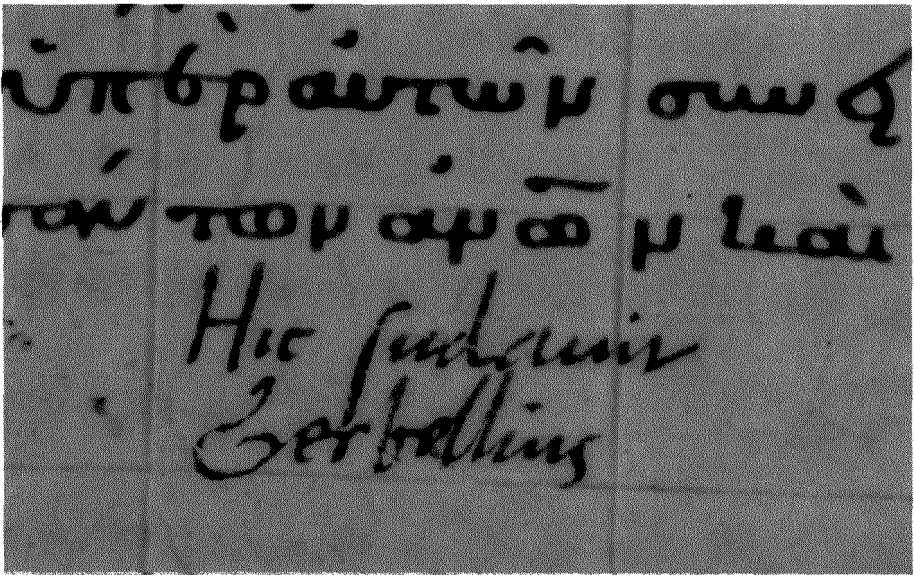 ὑπὲρ αὐτῶν συν
τῶν καὶ
Hic sudauit
Gerbellius